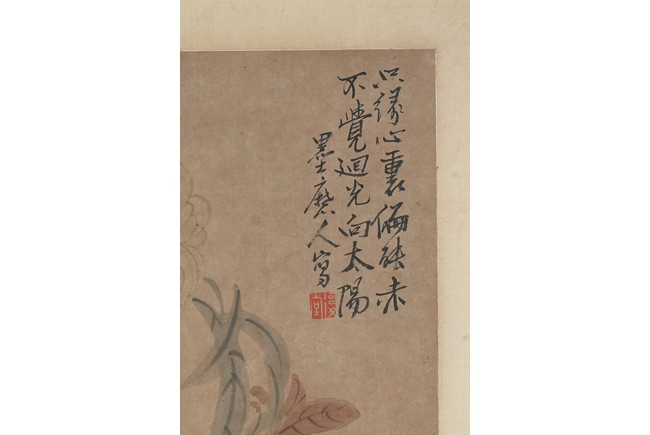 只缘心裏偏能赤
不覺迴光向太陽
墨磨人寫